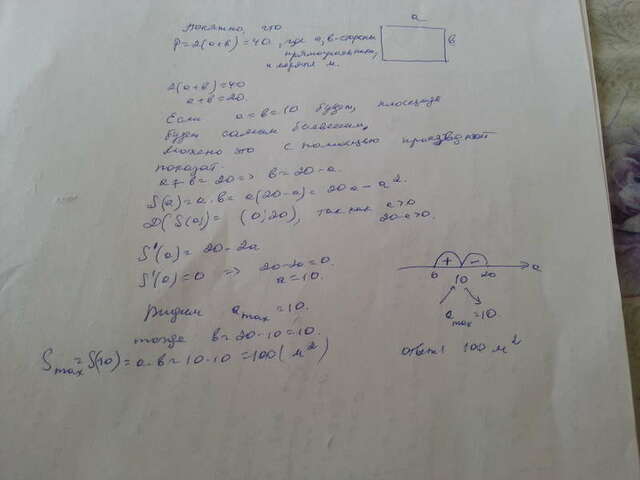 Понятно, что
a
P=2(a+b)=40, где a, b-стороны
b
прямоугольника,
2(a+b)=40
a+b=20.
Если a=b=10 будет, площадь
будет самым большим,
можно это с помощью производной
показат.
a+b=20=> b=20-a.
S(a)=a·b=a(20-a)=20a-a².
D(S(a))=(0;20), так как a>0
20-a>0.
S'(a)=20-2a
S'(a)=0 => 20-2a=0.
a=10.
+ -
0 10 20 a
a max =10.
Видим a max =10.
тогда b=20-10=10.
S max = S(10)=a·b=10·10=100(м²)
Ответ: 100 м²